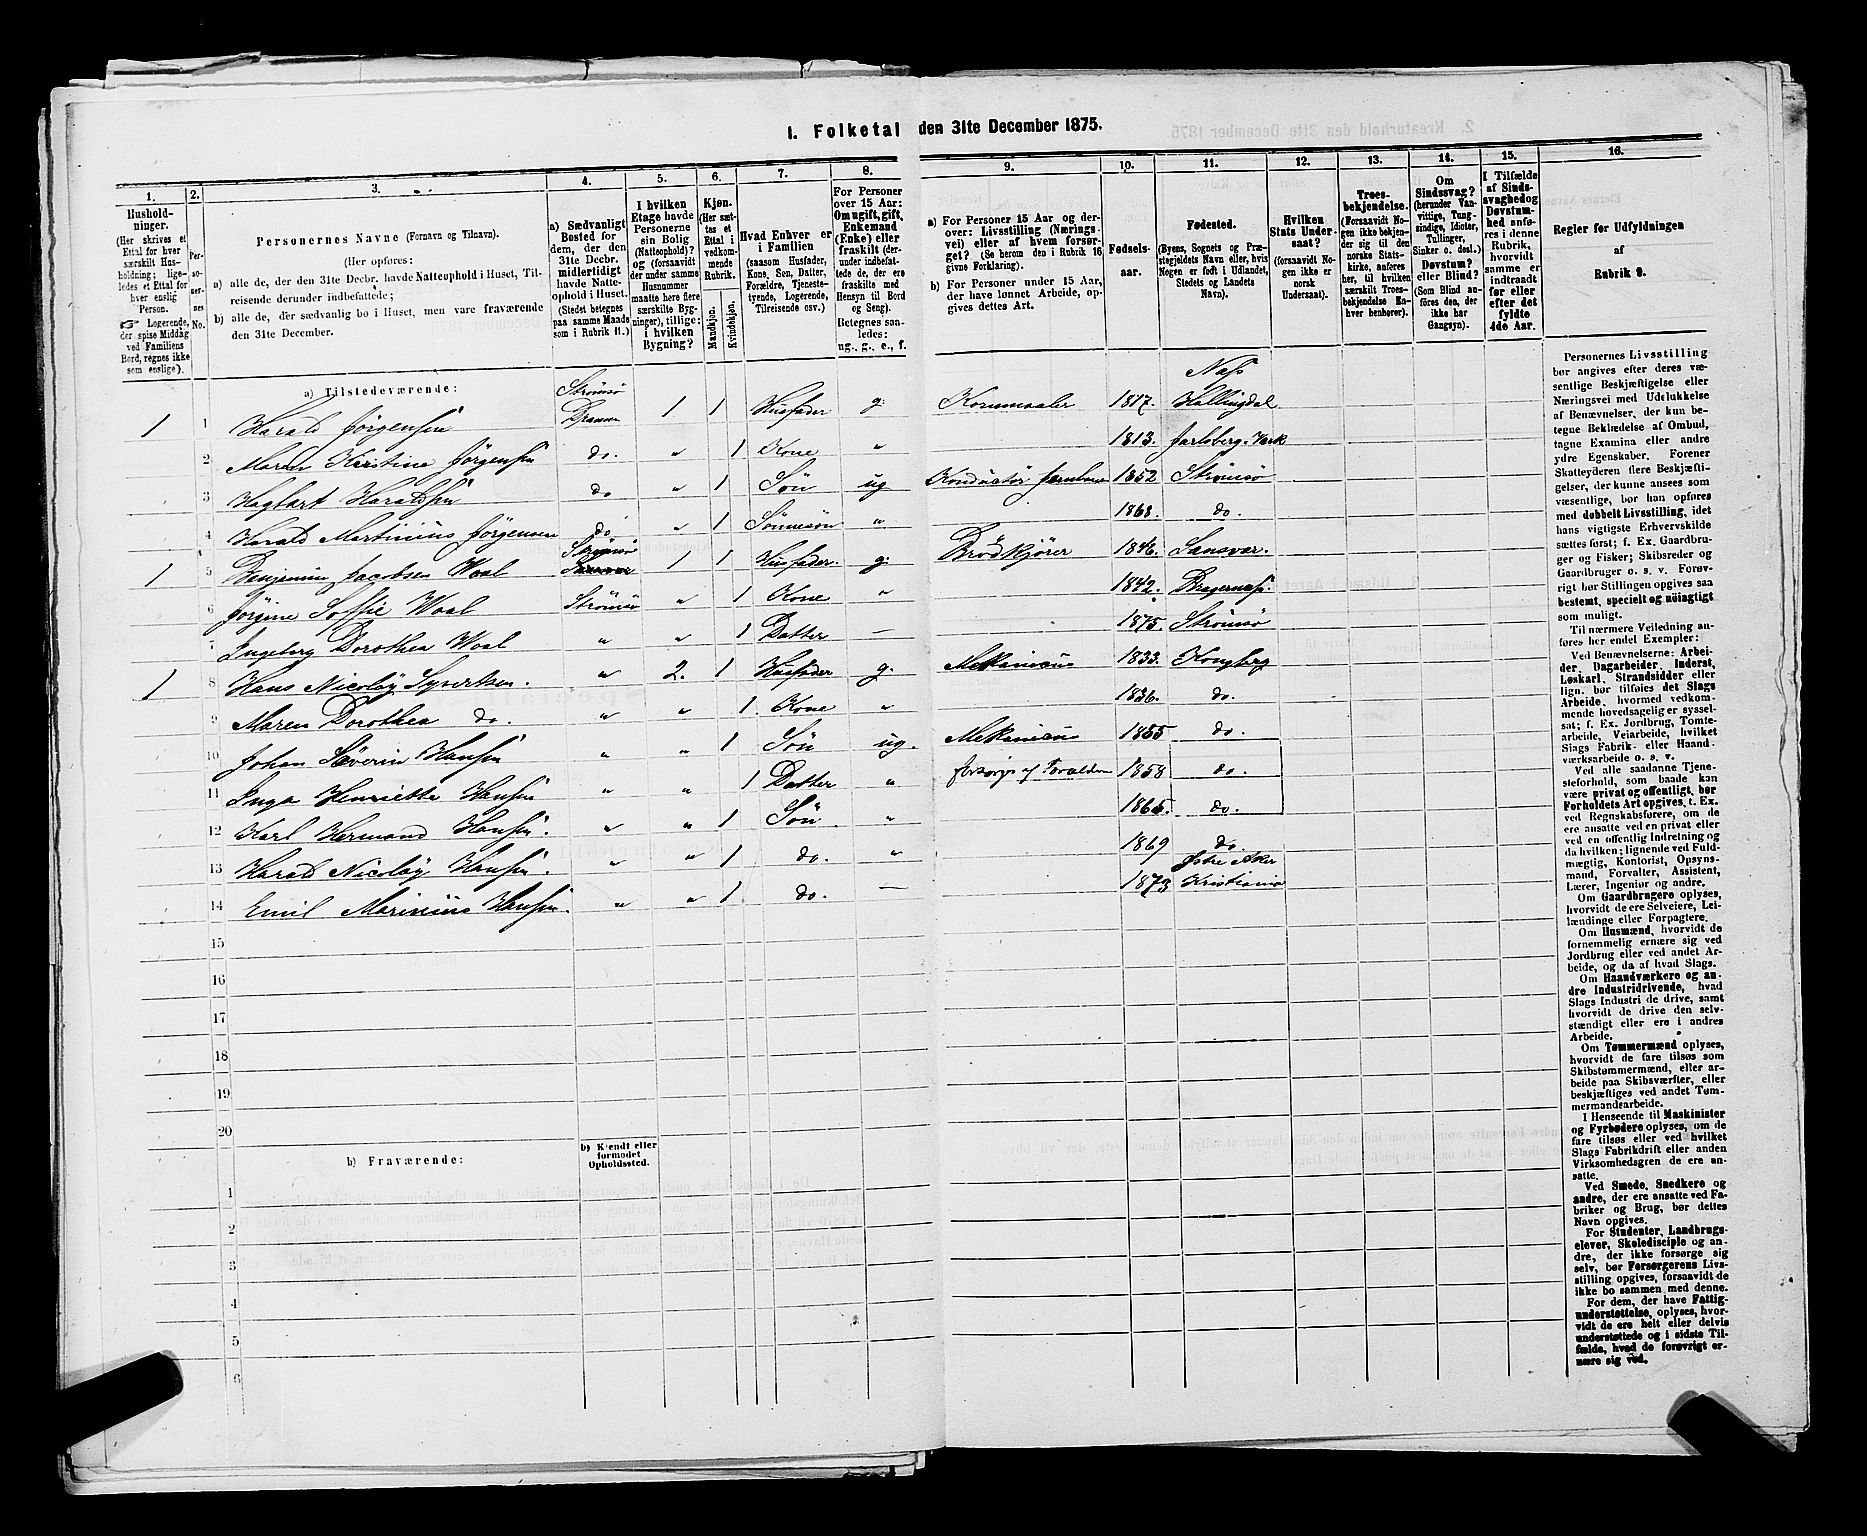 1. Folketal den 31te December 1875.
1.
2.
3.
4.
5.
6.
7.
8.
9.
10.
11.
12.
13.
14.
15.
16.
Hushold-
ninger.
(Her skrives et
Ettal for hver
særskilt Hus-
holdning; lige-
ledes et Ettal for
hver enslig
Person.
☞ Logerende,
der spise Middag
ved Familiens
Bord, regnes ikke
som enslige).
Per-
so-
ner-
nes
No.
Personernes Navne (Fornavn og Tilnavn).
(Her opføres:
a) alle de, der den 31te Decbr. havde Natteophold i Huset, Til-
reisende derunder indbefattede;
b) alle de, der sædvanlig bo i Huset, men vare fraværende
den 31te December.
a) Sædvanligt
Bosted for
dem, der den
31te Decbr.
midlertidigt
havde Natte-
ophold i Huset.
(Stedet betegnes
paa samme Maade
som i Rubrik 11.)
I hvilken
Etage havde
Personerne
sin Bolig
(Natteophold)?
og (forsaavidt
der under samme
Husnummer
maatte høre flere
særskilte Byg-
ninger), tillige:
i hvilken
Bygning?
Kjøn.
(Her sæt-
tes et
Ettal i
vedkom-
mende
Rubrik.
Mandkjøn.
Kvindekjøn.
Hvad Enhver er
i Familien
(saasom Husfader,
Kone, Søn, Datter,
Forældre, Tjeneste-
tyende, Logerende,
Tilreisende osv.)
For Personer
over 15 Aar:
Om ugift, gift,
Enkemand
(Enke) eller
fraskilt (der-
under indbefat-
tede de, der ere
fraskilte med
Hensyn til Bord
og Seng).
Betegnes saa-
ledes:
ug., g., e., f.
a) For Personer 15 Aar og der-
over: Livsstilling (Nærings-
vei) eller af hvem forsør-
get? (Se herom den i Rubrik 16
givne Forklaring).
b) For Personer under 15 Aar,
der have lønnet Arbeide, op-
gives dettes Art.
Fødsels-
aar.
Fødested.
(Byens, Sognets og Præ-
stegjeldets Navn eller, hvis
Nogen er født i Udlandet,
Stedets og Landets
Navn).
Hvilken
Stats Under-
saat?
(forsaavidt No-
gen ikke er
norsk
Undersaat).
Troes-
bekjendelse.
(Forsaavidt No-
gen ikke bekjen-
der sig til den
norske Stats-
kirke, anføres
her, til hvilken
særskilt Troes-
bekjendelse En-
hver henhører).
Om
Sindssvag?
(herunder Van-
vittige, Tung-
sindige, Idioter,
Tullinger,
Sinker o. desl.)
Døvstum?
eller Blind?
(Som Blind an-
føres den, der
ikke har
Gangsyn).
I Tilfælde
af Sinds-
svaghed og
Døvstum-
hed anfø-
res i denne
Rubrik,
hvorvidt
samme er
indtraadt
før eller
efter det
fyldte
4de Aar.
Regler for Udfyldningen
af
Rubrik 9.
a) Tilstedeværende:
1 1 Harald Jørgensen Strømsø Drammen 1 1 Husfader g. 1817. Næs Hallingdal
2 Maren Kirstine Jørgensen do. " 1 Kone " 1813. Jarlsberg Værk
3 Hagbart Haraldsen do " 1 Søn ug Konduktør Jernbane 1852 Strømsø
4 Harald Martinius Jørgensen do " 1 Sønnesøn " 1868. do.
1 5 Benjamin Jacobsen Waal Strømsø 1 1 Husfader. g. Brødkjører 1846. Sansvær.
6 Jørgine Soffie Waal Strømsø " 1 Kone " 1842. Bragernæs.
7 Ingeborg Dorothea Waal " " 1 Datter — 1875. Strømsø
1 8 Hans Nicolay Syvertsen. " 2. 1 Husfader g. Mekanicus 1833. Kongberg
9 Maren Dorothea do. " " 1. Kone " 1836. do.
10 Johan Severin Hansen " " 1 Søn ug. Mekanicus 1855 do.
11 Inga Henriette Hansen " " 1 Datter " forsørges af Forældrene 1858 do.
12 Karl Hermand Hansen. " " 1 Søn " 1865. do.
13 Harald Nicolay Hansen. " " 1 do. " 1869 do.
14 Emil Marinius Hansen. " " 1 do. — 1873 Østre Aker Kristiania
15
16
17
18
19
20
b) Fraværende:
b) Kjendt eller
formodet
Opholdssted.
1
2
3
4
5
6
Personernes Livsstilling
bør angives efter deres væ-
sentlige Beskjæftigelse eller
Næringsvei med Udelukkelse
af Benævnelser, der kun be-
tegne Beklædelse af Ombud,
tagne Examina eller andre
ydre Egenskaber. Forener
Skatteyderen flere Beskjæfti-
gelser, der kunne ansees som
væsentlige, bør han opføres
med dobbelt Livsstilling, idet
hans vigtigste Erhvervskilde
sættes først; f. Ex. Gaardbru-
ger og Fisker; Skibsreder og
Gaardbruger o. s. v. Forøv-
rigt bør Stillingen opgives saa
bestemt, specielt og nøiagtigt
som muligt.
Til nærmere Veiledning an-
føres her endel Exempler:
Ved Benævnelserne: Arbei-
der, Dagarbeider, Inderst,
Løskarl, Strandsidder eller
lign. bør tilføies det Slags
Arbeide, hvormed vedkom-
mende hovedsagelig er syssel-
sat; f. Ex. Jordbrug, Tomte-
arbeide, Veiarbeide, hvilket
Slags Fabrik- eller Haand-
værksarbeide o. s. v.
Ved alle saadanne Tjene-
steforhold, som baade kan
være privat og offentligt, bør
Forholdets Art opgives, t. Ex.
ved Regnskabsførere, om de
ere ansatte ved en privat eller
ved en offentlig Indretning og
da hvilken; lignende ved Fuld-
mægtig, Kontorist, Opsyns-
mand, Forvalter, Assistent,
Lærer, Ingeniør og andre.
Om Gaardbrugere oplyses,
hvorvidt de ere Selveiere, Lei-
lændinge eller Forpagtere.
Om Husmænd, hvorvidt de
fornemmelig ernære sig ved
Jordbrug eller ved andet Ar-
beide, og da af hvad Slags.
Om Haandværkere og an-
dre Industridrivende, hvad
Slags Industri de drive, samt
hvorvidt de drive den selv-
stændigt eller ere i andres
Arbeide.
Om Tømmermænd oplyses,
hvorvidt de fare tilsøs som
Skibstømmermænd, eller ar-
beide paa Skibsværfter, eller
beskjæftiges ved andet Tøm-
mermandsarbeide.
I Henseende til Maskinister
og Fyrbødere oplyses, om de
fare tilsøs eller ved hvilket
Slags Fabrikdrift eller anden
Virksomhedsgren de ere an-
satte.
Ved Smede, Snedkere og
andre, der ere ansatte ved Fa-
briker og Brug, bør dettes
Navn opgives.
For Studenter, Landbrugs-
elever, Skoledisciple og an-
dre, der ikke forsørge sig
selv, bør Forsørgerens Livs-
stilling opgives, forsaavidt de
ikke bo sammen med denne.
For dem, der have Fattig-
understøttelse, oplyses, hvor-
vidt de ere helt eller delvis
understøttede og i sidste Til-
fælde, hvad de forøvrigt er-
nære sig ved.